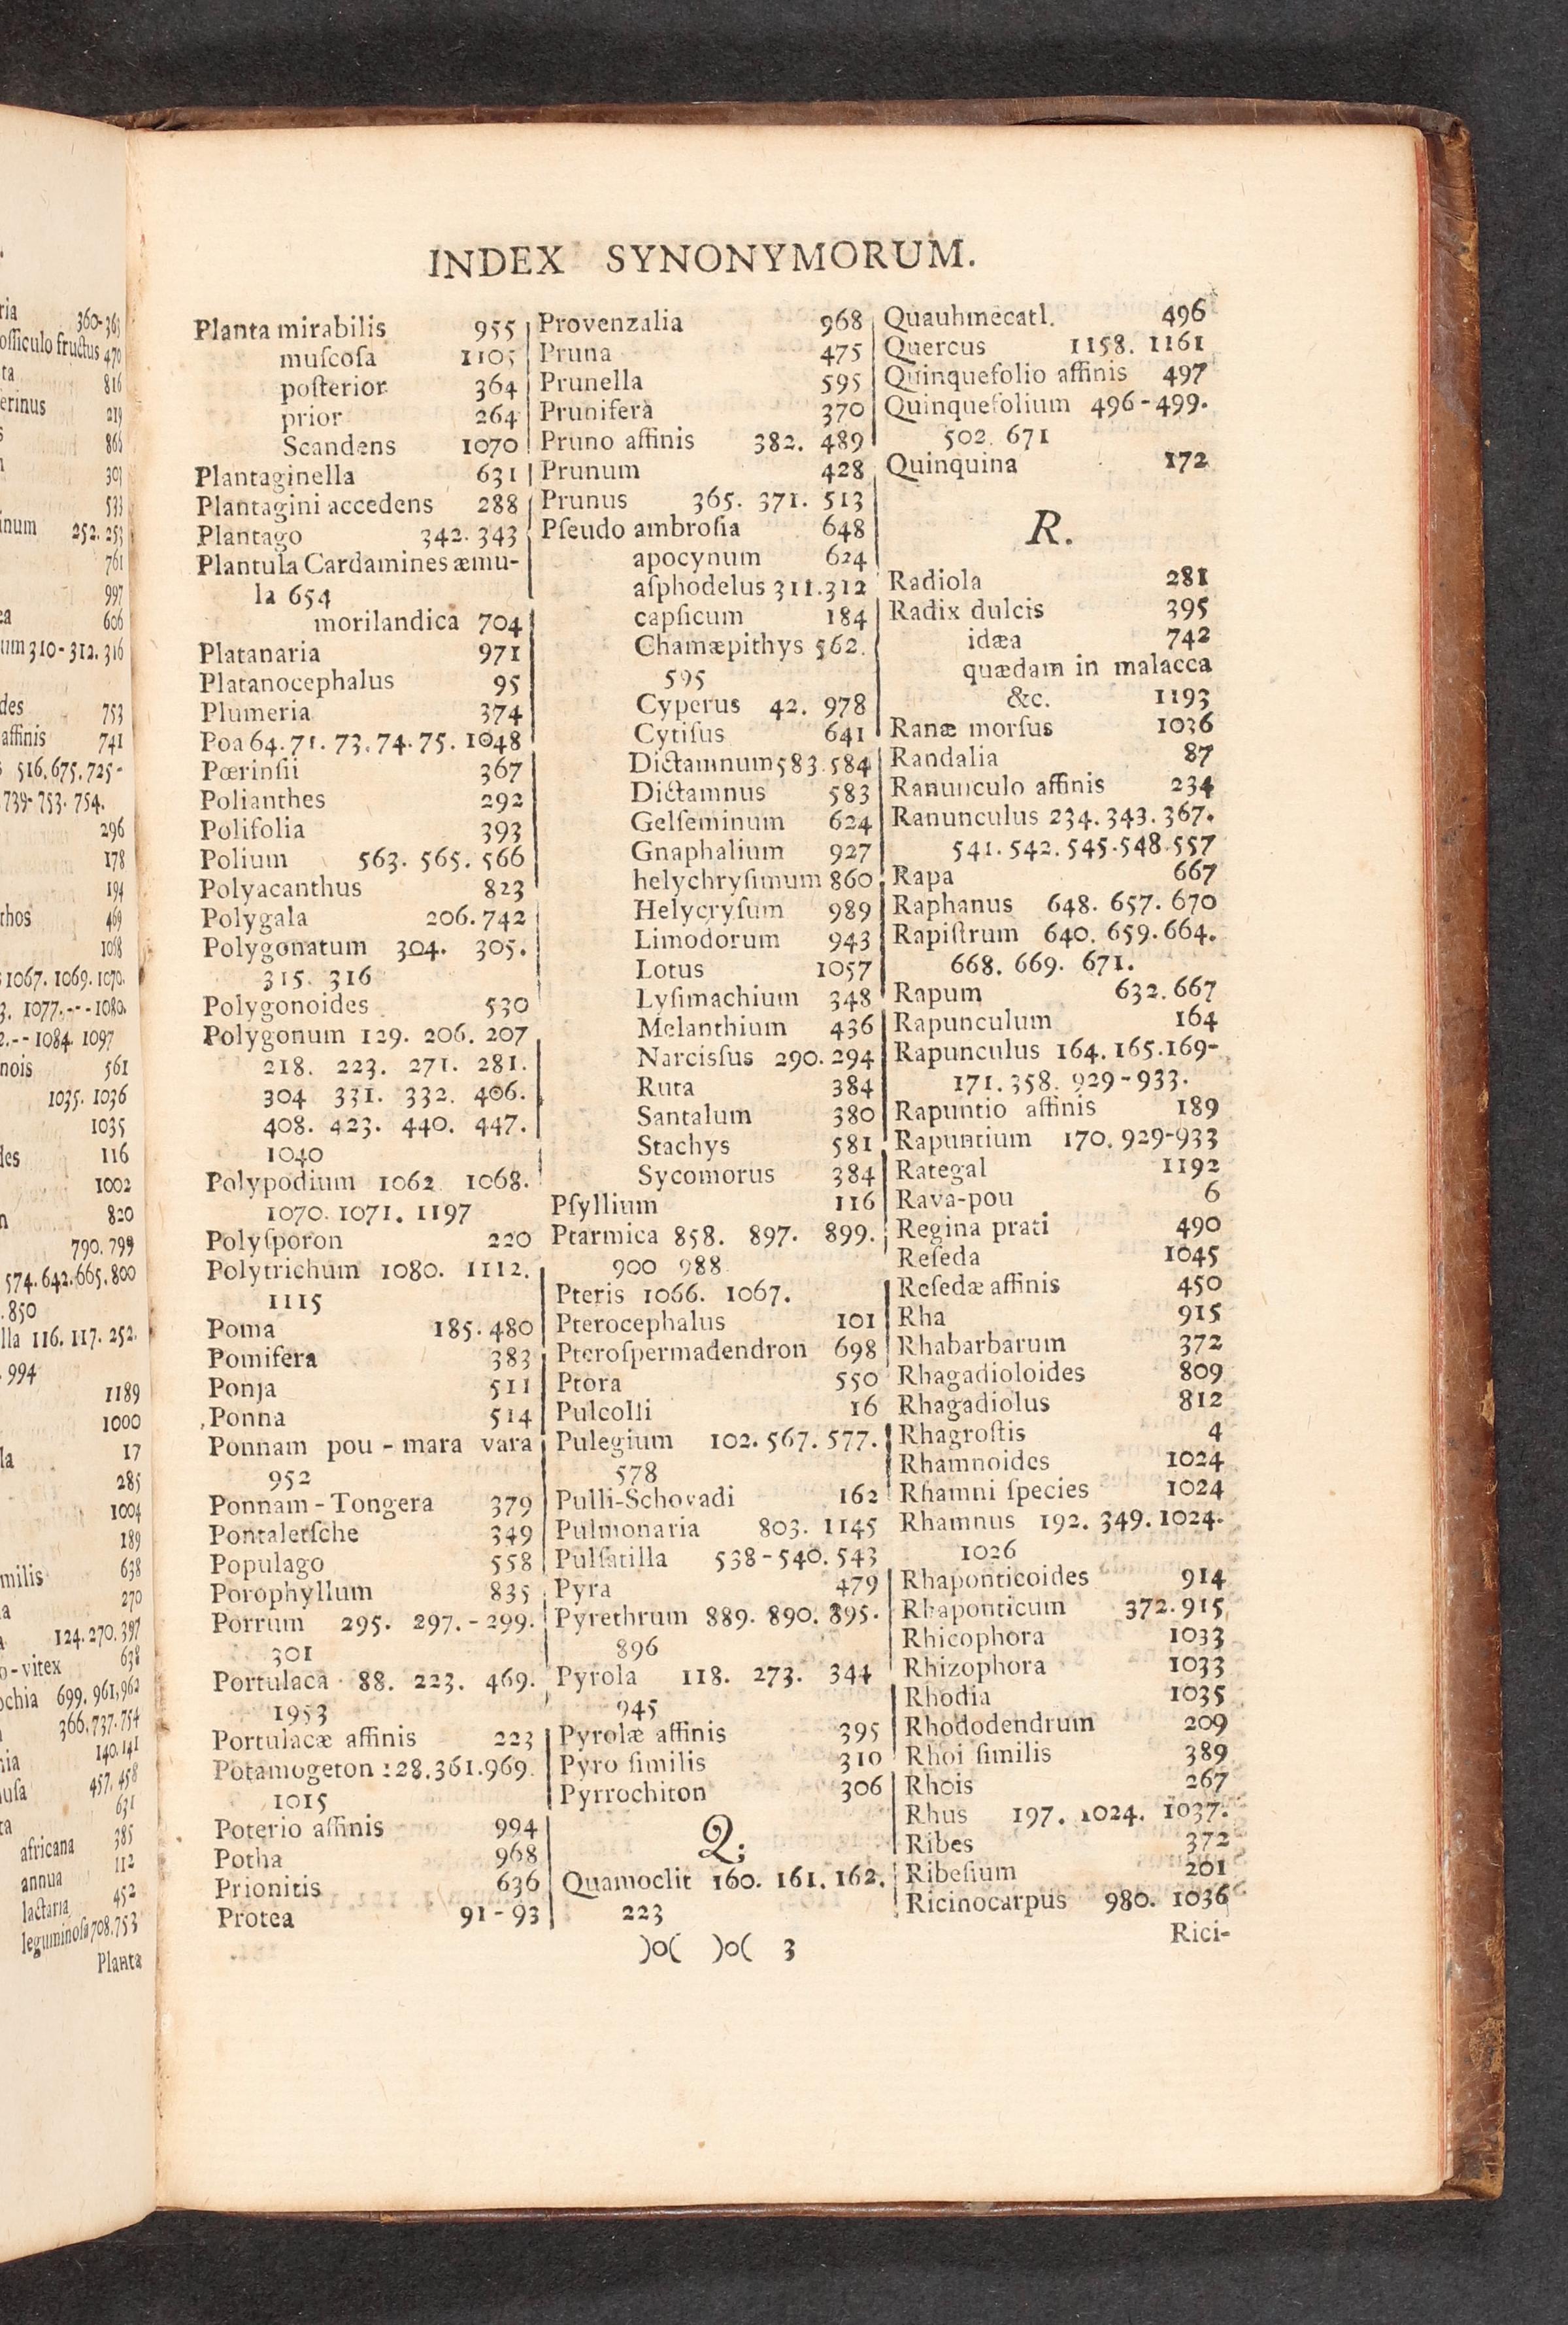 INDEX SYNONYMORUM.
Planta mirabilis 955
muſcoſa 1105
poſterior 364
prior 264
Scandens 1070
Plantaginella 631
Plantagini accedens 288
Plantago 342. 343
Plantula Cardamines æmu-
la 654
morilandica 704
Platanaria 971
Platanocephalus 95
Plumeria 374
Poa 64. 71. 73. 74. 75. 1048
Pœrinſii 367
Polianthes 292
Polifolia 393
Polium 563. 565. 566
Polyacanthus 823
Polygala 206. 742
Polygonatum 304. 305.
315. 316
Polygonoides 530
Polygonum 129. 206. 207
218. 223. 271. 281.
304 331. 332. 406.
408. 423. 440. 447.
1040
Polypodium 1062 1068.
1070. 1071. 1197
Polyſporon 220
Polytrichum 1080. 1112.
1115
Poma 185. 480
Pomifera 383
Ponja 511
Ponna 514
Ponnam pou - mara vara
952
Ponnam - Tongera 379
Pontaletſche 349
Populago 558
Porophyllum 835
Porrum 295. 297. - 299.
301
Portulaca 88. 223. 469.
1953
Portulacæ affinis 223
Potamogeton 128. 361. 969.
1015
Poterio affinis 994
Potha 968
Prionitis 636
Protea 91 - 93
Provenzalia 968
Pruna 475
Prunella 595
Prunifera 370
Pruno affinis 382. 489
Prunum 428
Prunus 365. 371. 513
Pſeudo ambroſia 648
apocynum 624
aſphodelus 311. 312
capſicum 184
Chamæpithys 562.
595
Cyperus 42. 978
Cytiſus 641
Dictamnum 583. 584
Dictamnus 583
Gelſeminum 624
Gnaphalium 927
helychryſimum 860
Helycryſum 989
Limodorum 943
Lotus 1057
Lyſimachium 348
Melanthium 436
Narciſſus 290. 294
Ruta 384
Santalum 380
Stachys 581
Sycomorus 384
Pſyllium 116
Ptarmica 858. 897. 899.
900 988
Pteris 1066. 1067.
Pterocephalus 101
Pteroſpermadendron 698
Ptora 550
Pulcolli 16
Pulegium 102. 567. 577.
578
Pulli-Schovadi 162
Pulmonaria 803. 1145
Pulſatilla 538 - 540. 543
Pyra 479
Pyrethrum 889. 890. 895.
896
Pyrola 118. 273. 344
945
Pyrolæ affinis 395
Pyro ſimilis 310
Pyrrochiton 306
Q.
Quamoclit 160. 161. 162.
223
Quauhmecatl. 496
Quercus 1158. 1161
Quinquefolio affinis 497
Quinquefolium 496 - 499.
502. 671
Quinquina 172
R.
Radiola 281
Radix dulcis 395
idæa 742
quædam in malacca
&c. 1193
Ranæ morſus 1036
Randalia 87
Ranunculo affinis 234
Ranunculus 234. 343. 367.
541. 542. 545. 548. 557
Rapa 667
Raphanus 648. 657. 670
Rapiſtrum 640. 659. 664.
668. 669. 671.
Rapum 632. 667
Rapunculum 164
Rapunculus 164. 165. 169-
171. 358. 929 - 933.
Rapuntio affinis 189
Rapuntium 170. 929-933
Rategal 1192
Rava-pou 6
Regina prati 490
Reſeda 1045
Reſedæ affinis 450
Rha 915
Rhabarbarum 372
Rhagadioloides 809
Rhagadiolus 812
Rhagroſtis 4
Rhamnoides 1024
Rhamni ſpecies 1024
Rhamnus 192. 349. 1024.
1026
Rhaponticoides 914
Rhaponticum 372. 915
Rhicophora 1033
Rhizophora 1033
Rhodia 1035
Rhododendrum 209
Rhoi ſimilis 389
Rhois 267
Rhus 197. 1024. 1037.
Ribes 372
Ribeſium 201
Ricinocarpus 980. 1036
)o( )o( 3
Rici-
ria 360-363
oſſiculo fructus 470
ta 816
erinus 219
866
303
533
inum 252. 253
761
997
ea 606
um 310 - 312. 316
des 753
affinis 741
516. 675. 725-
739- 753. 754.
296
178
194
thos 469
1067. 1069. 1070.
3. 1077. - - - 1080.
- - 1084. 1097
nois 561
1035. 1036
1035
des 116
1002
820
790. 799
574. 642. 665. 800
. 850
lla 116. 117. 252.
. 994
1189
1000
la 17
285
1004
189
milis 638
270
124. 270. 397
o - vitex 638
ochia 699. 961, 962
366. 737. 754
nia 140. 141
uſa 457. 458
631
africana 385
annua 112
lactaria 452
leguminoſa 708. 753
Planta